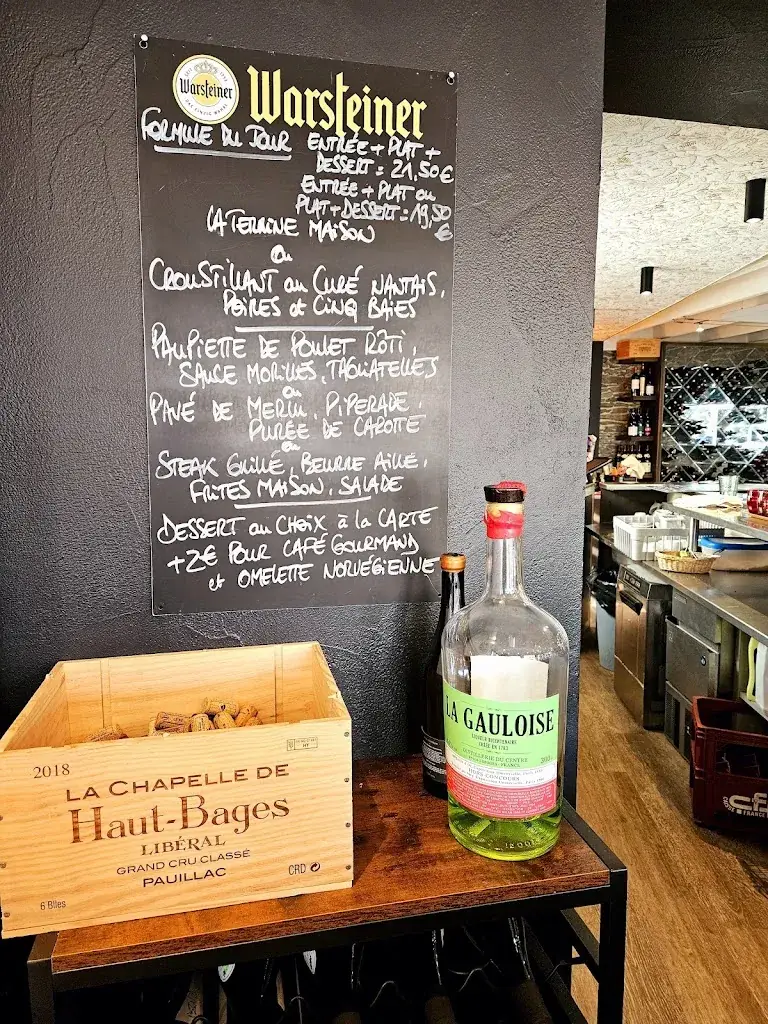 Warsteiner
Warsteiner
FORMULE DU JOUR
ENTRÉE + PLAT +
DESSERT = 21,50€
ENTRÉE + PLAT ou
PLAT + DESSERT = 19,50
€
LA TERRINE MAISON
ou
CROUSTILLANT au CURÉ NANTAIS,
POIRES et CINQ BAIES
PAUPIETTE DE POULET RÔTI,
SAUCE MORILLES, TAGLIATELLES
ou
PAVÉ DE MERLU, PIPERADE,
PURÉE DE CAROTTE
ou
STEAK GRILLÉ, BEURRE AILLÉ,
FRITES MAISON, SALADE
DESSERT au CHOIX à la CARTE
+2€ POUR CAFÉ GOURMAND
et OMELETTE NORVÉGIENNE
2018
LA CHAPELLE DE
Haut-Bages
LIBÉRAL
GRAND CRU CLASSÉ
PAUILLAC
CRD
6 Btles
LA GAULOISE
LIQUEUR BICENTENAIRE
CRÉÉE EN 1783
DISTILLERIE DU CENTRE
HORS CONCOURS